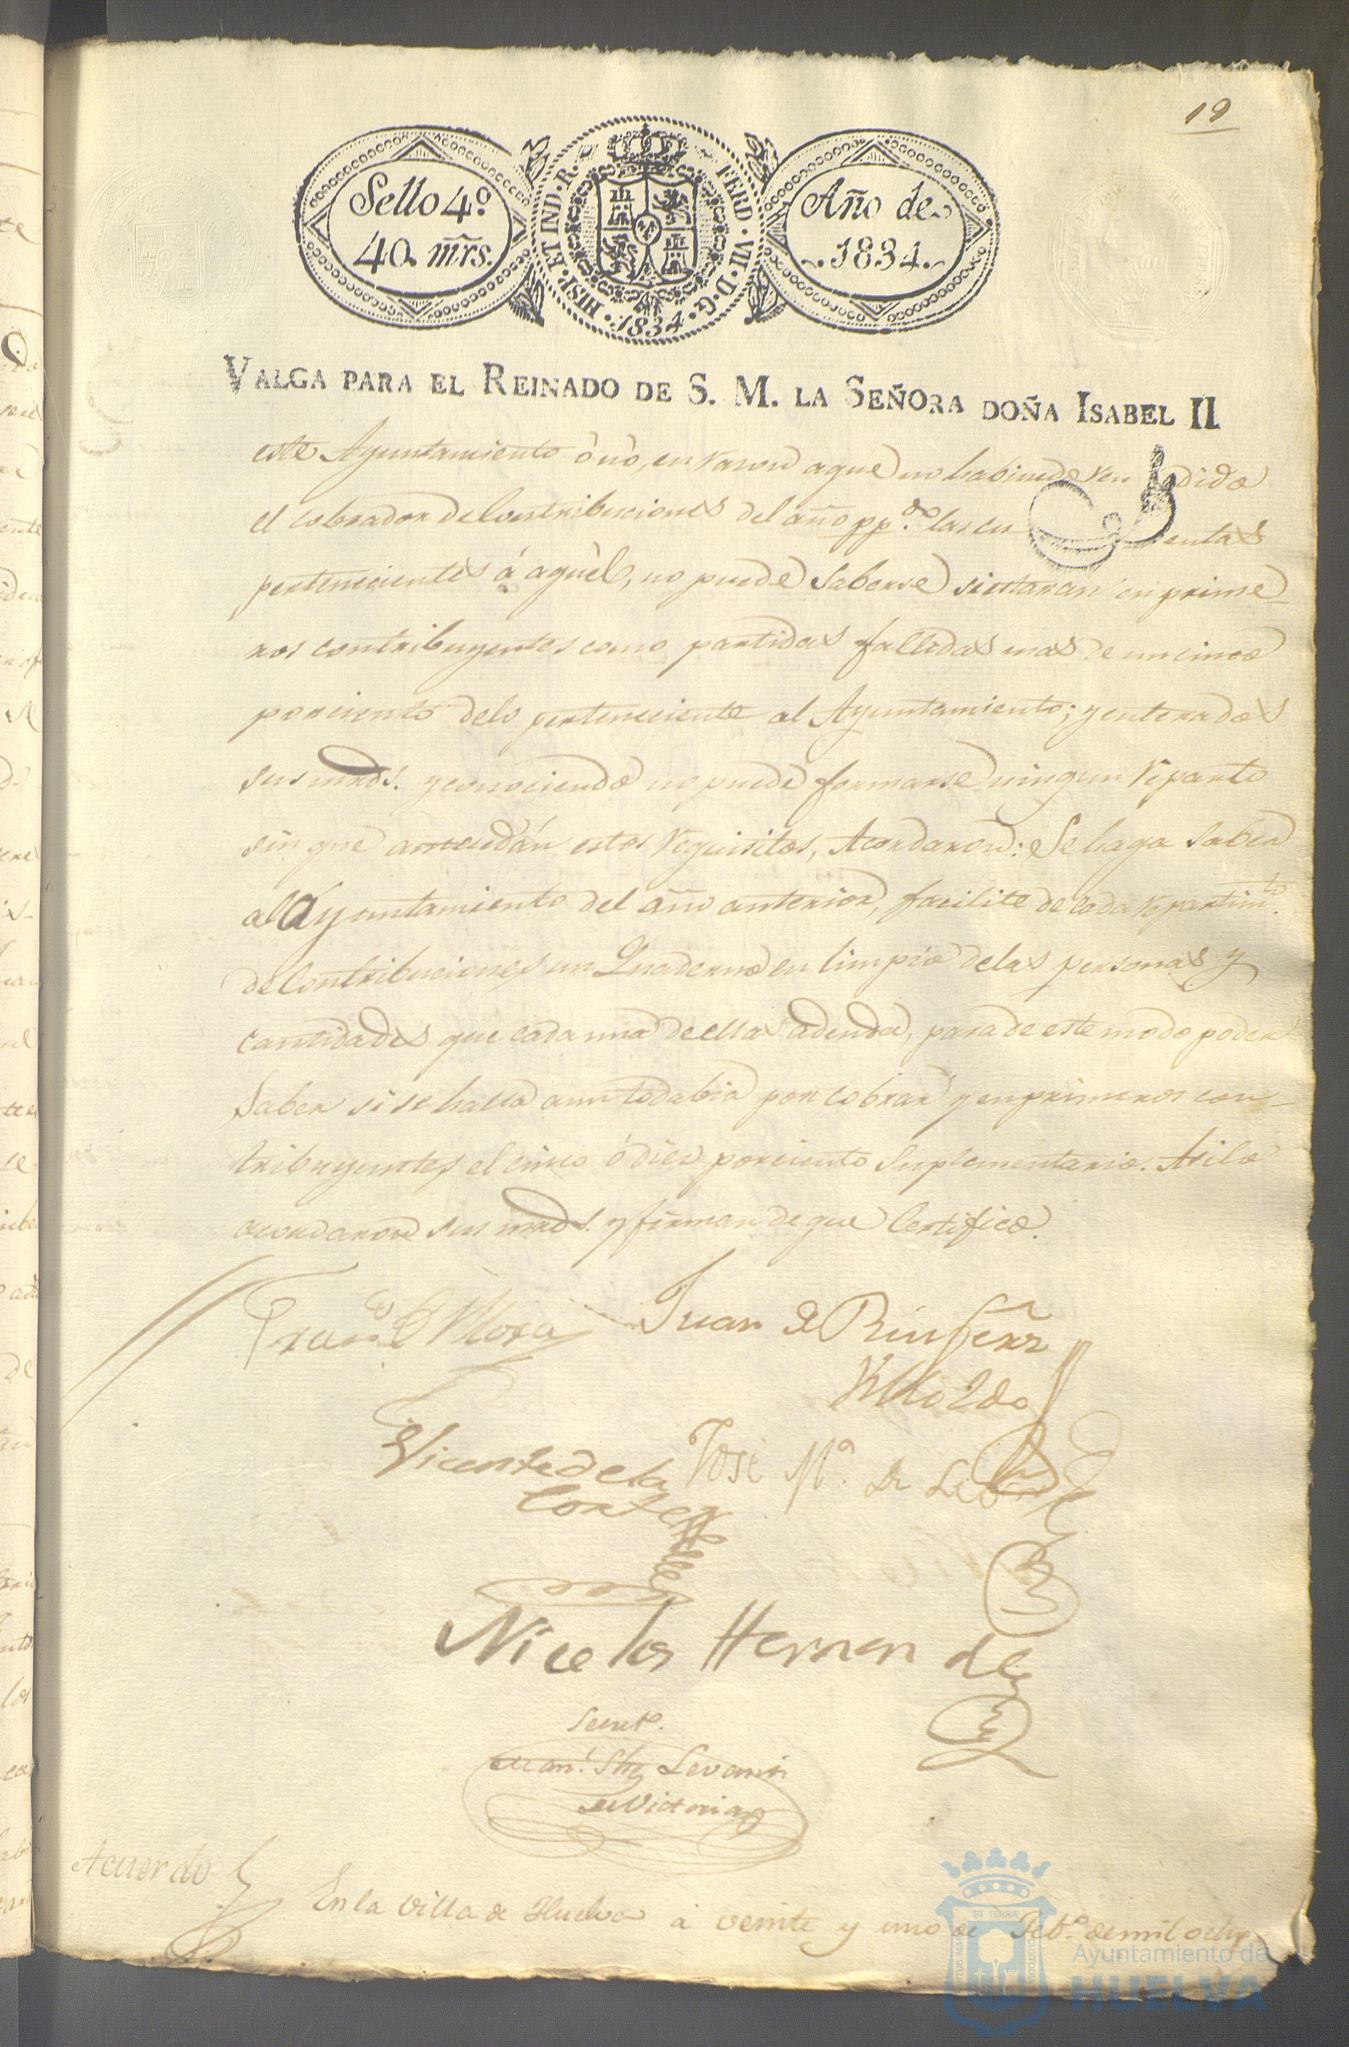 19
Sello 4º
40 mrs.
HISP. ET IND. R. FERD. VII. D. G. 1834.
Año de
1834.
VALGA PARA EL REINADO DE S. M. LA SEÑORA DOÑA ISABEL II
este Ayuntamiento ó nó, en razon aque no habiendo ren dido
el cobrador de Contribuciones del año pp.do las cu entas
pertenecientes á aquel, no puede saberse si estaran en prime-
ros contribuyentes como partidas fallidas mas de un cinco
porciento delo perteneciente al Ayuntamiento; y enterados
sus mrds. y conociendo no puede formarse ningun reparto
sin que antecedán estos requisitos, Acordaron: Se haga saber
al Ayuntamiento del año anterior, facilite de cada repartimto.
de Contribuciones un Quaderno en limpio delas personas y
cantidades que cada una de ellas adeuda, para de este modo poder
saber si se halla aun todabia por cobrar y en primeros con-
tribuyentes, el cinco ó diez porciento suplementario. Asi lo
acordaron sus mrds. y firman de que Certifico.
Franco. Mora
Juan
Vicente de la
Corte
José Mª. de
Nicolas Hernandez
Secreto.
Victoria
Acuerdo
En la Villa de Huelva a veinte y uno de Febo. de mil ocho
Ayuntamiento de
HUELVA